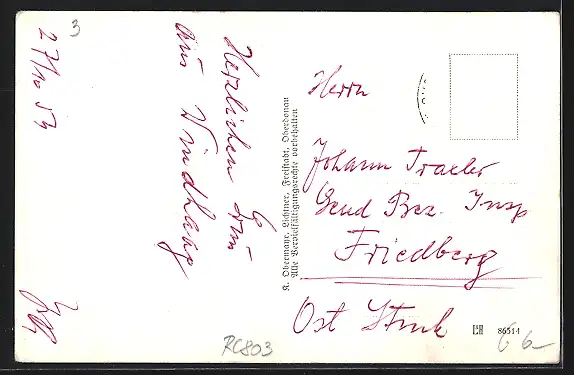 3
27/10 54
Herzlichen Gruß
aus Windhaag
K. Obermayr. Lichtner. Freistadt. Oberdonau
Alle Vervielfältigungsrechte vorbehalten
Herrn
Johann Traxler
Gend Bez. Insp
Friedberg
Ost Stmk
86514
6 6–
RC803